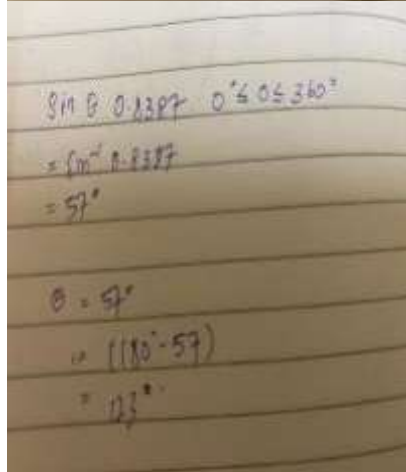 Sin θ 0.8387 0°≤ θ ≤ 360°
= Sin⁻¹ 0.8387
= 57°
θ = 57°
= (180° - 57)
= 123°